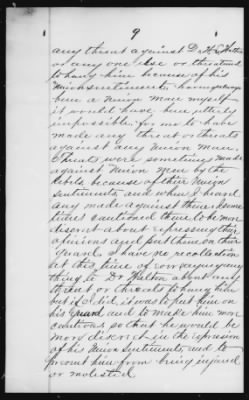 9
any threat against Dr. H. Hutton
or any one else or threatened
to hang him because of his
Union sentiments, having always
been a Union man myself
it would have been utterly
impossible for me to have
made any threat or threats
against any Union man.
Threats were sometimes made
against Union men by the
rebels because of their Union
sentiments and when I heard
any made against them I some
times cautioned them to be more
discreet about expressing their
opinions and put them on their
guard. I have no recollection
at this time of conveying any
thing to Dr. Hutton about any
threat or threats to hang him
but if I did, it was to put him on
his guard and to make him more
cautious so that he would be
more discreet in the expression
of his Union sentiments, and to
prevent him from being injured
or molested